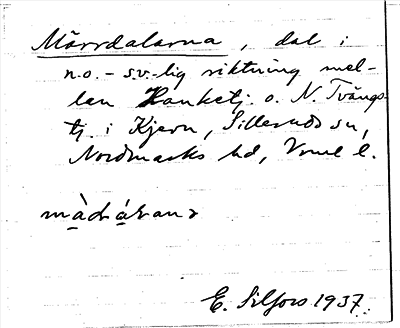 Mörrdalarna, dal i
n.o.-s.v.-lig riktning mel-
lan Hanketj. o. N. Tvängs-
tj. i Kjern, Sillerud sn,
Nordmarks hd, Vrml l.
E. Silfors 1937.